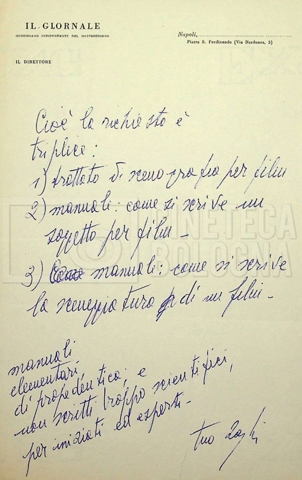 IL GIORNALE
QUOTIDIANO INDIPENDENTE DEL MEZZOGIORNO
Napoli,
Piazza S. Ferdinando (Via Nardones, 5)
IL DIRETTORE
Cioè la richiesta è
triplice:
1) trattato di scenografia per film
2) manuale: come si scrive un
soggetto per film -
3) Come manuale: come si scrive
la sceneggiatura di un film -
manuali
elementari,
di propedeutica, e
non scritti troppo scientifici,
per iniziati ed esperti -
tuo
CINETECA
BOLOGNA